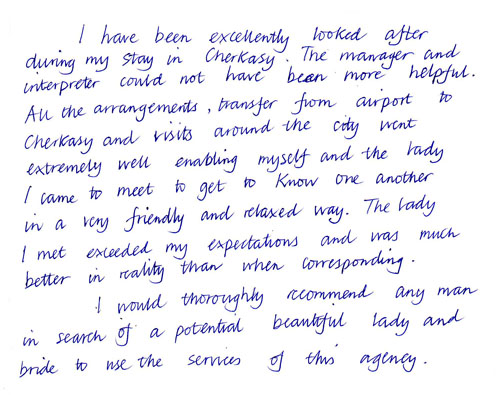 I have been excellently looked after
during my stay in Cherkasy. The manager and
interpreter could not have been more helpful.
All the arrangements, transfer from airport to
Cherkasy and visits around the city went
extremely well enabling myself and the lady
I came to meet to get to know one another
in a very friendly and relaxed way. The lady
I met exceeded my expectations and was much
better in reality than when corresponding.
I would thoroughly recommend any man
in search of a potential beautiful lady and
bride to use the services of this agency.